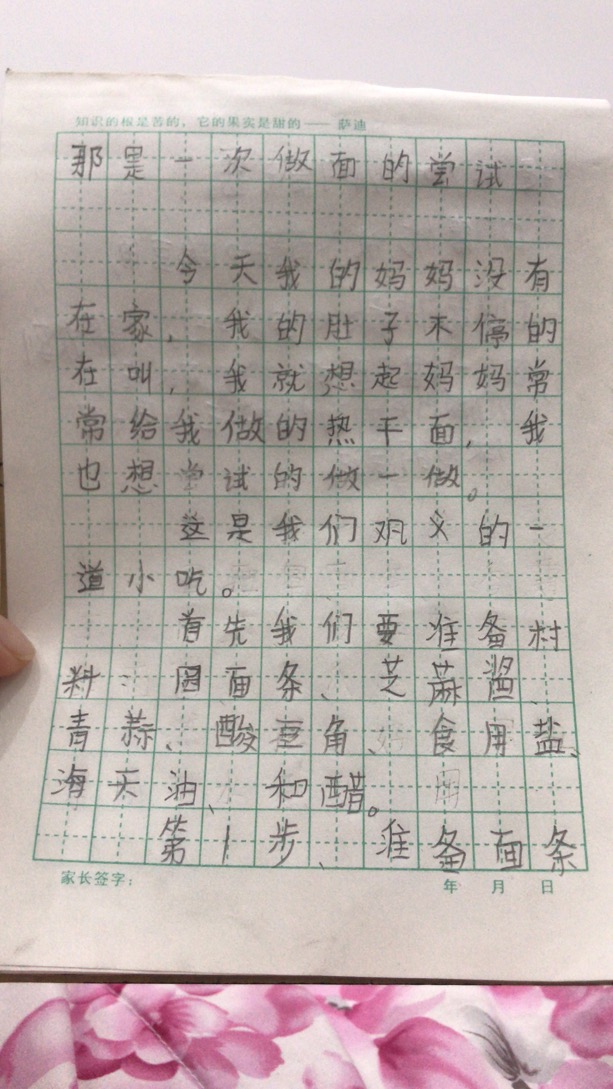 知识的根是苦的，它的果实是甜的—— 萨迪
那是一次做面的尝试
今天我的妈妈没有
在家，我的肚子不停的
在叫，我就想起妈妈常
常给我做的热干面，我
也想尝试的做一做。
这是我们观义的一
道小吃。
首先我们要准备材
料：圆面条、芝蔴酱、
青蒜、酸豆角、食用盐、
海天油、和醋。
第1步、准备面条
家长签字：
年 月 日